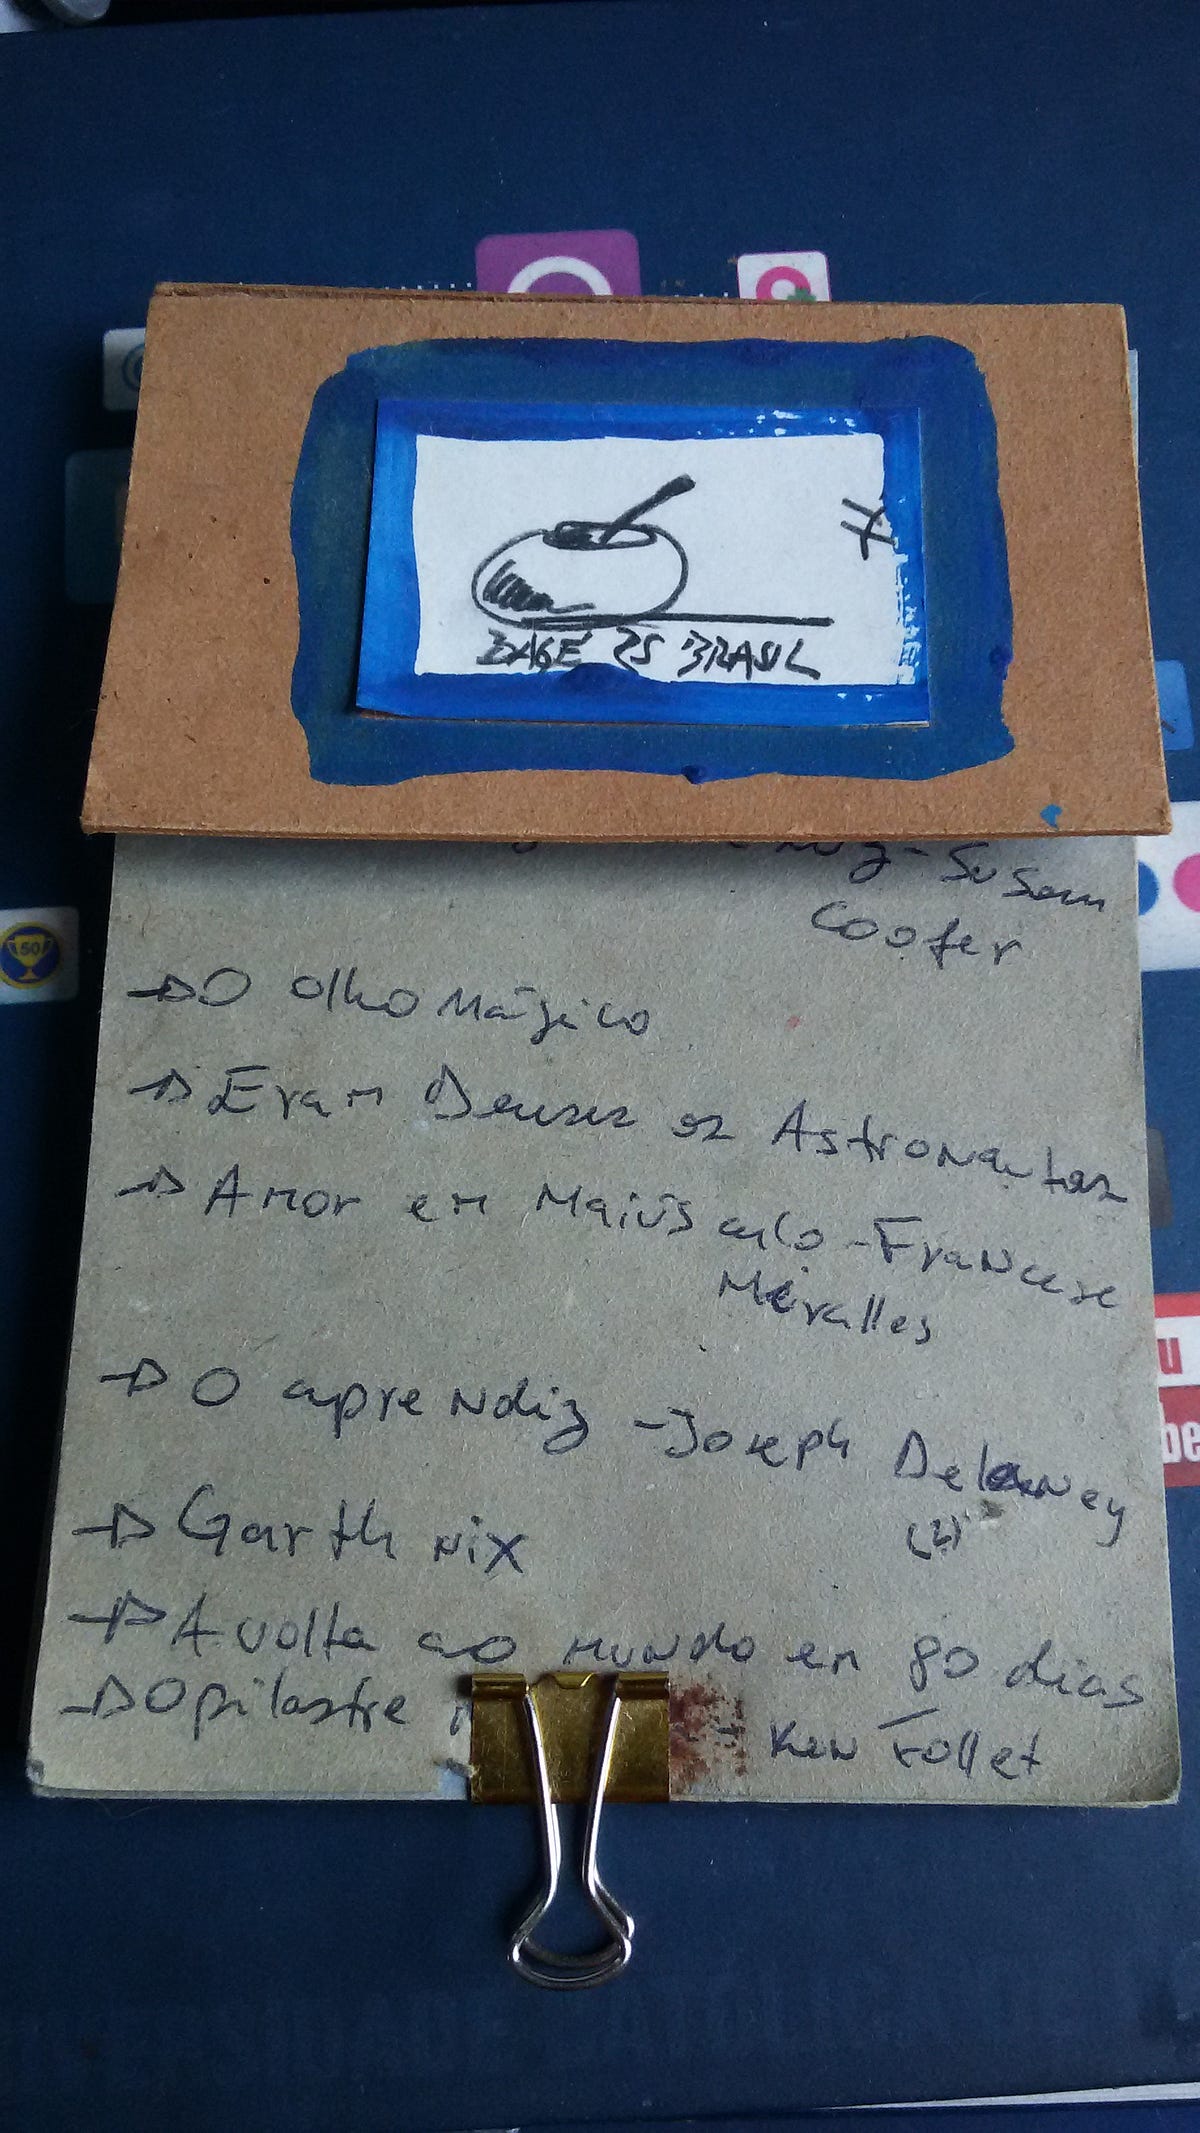 BAGÉ RS BRASIL
- Susan
Coofer
O olho Mágico
Eram Deuses os Astronautas
Amor em Maiúsculo - Francisc
Méralles
O aprendiz - Joseph Delaney
(2)
Garth Nix
A volta ao mundo em 80 dias
O pilastre Ken Follet
50
u
be